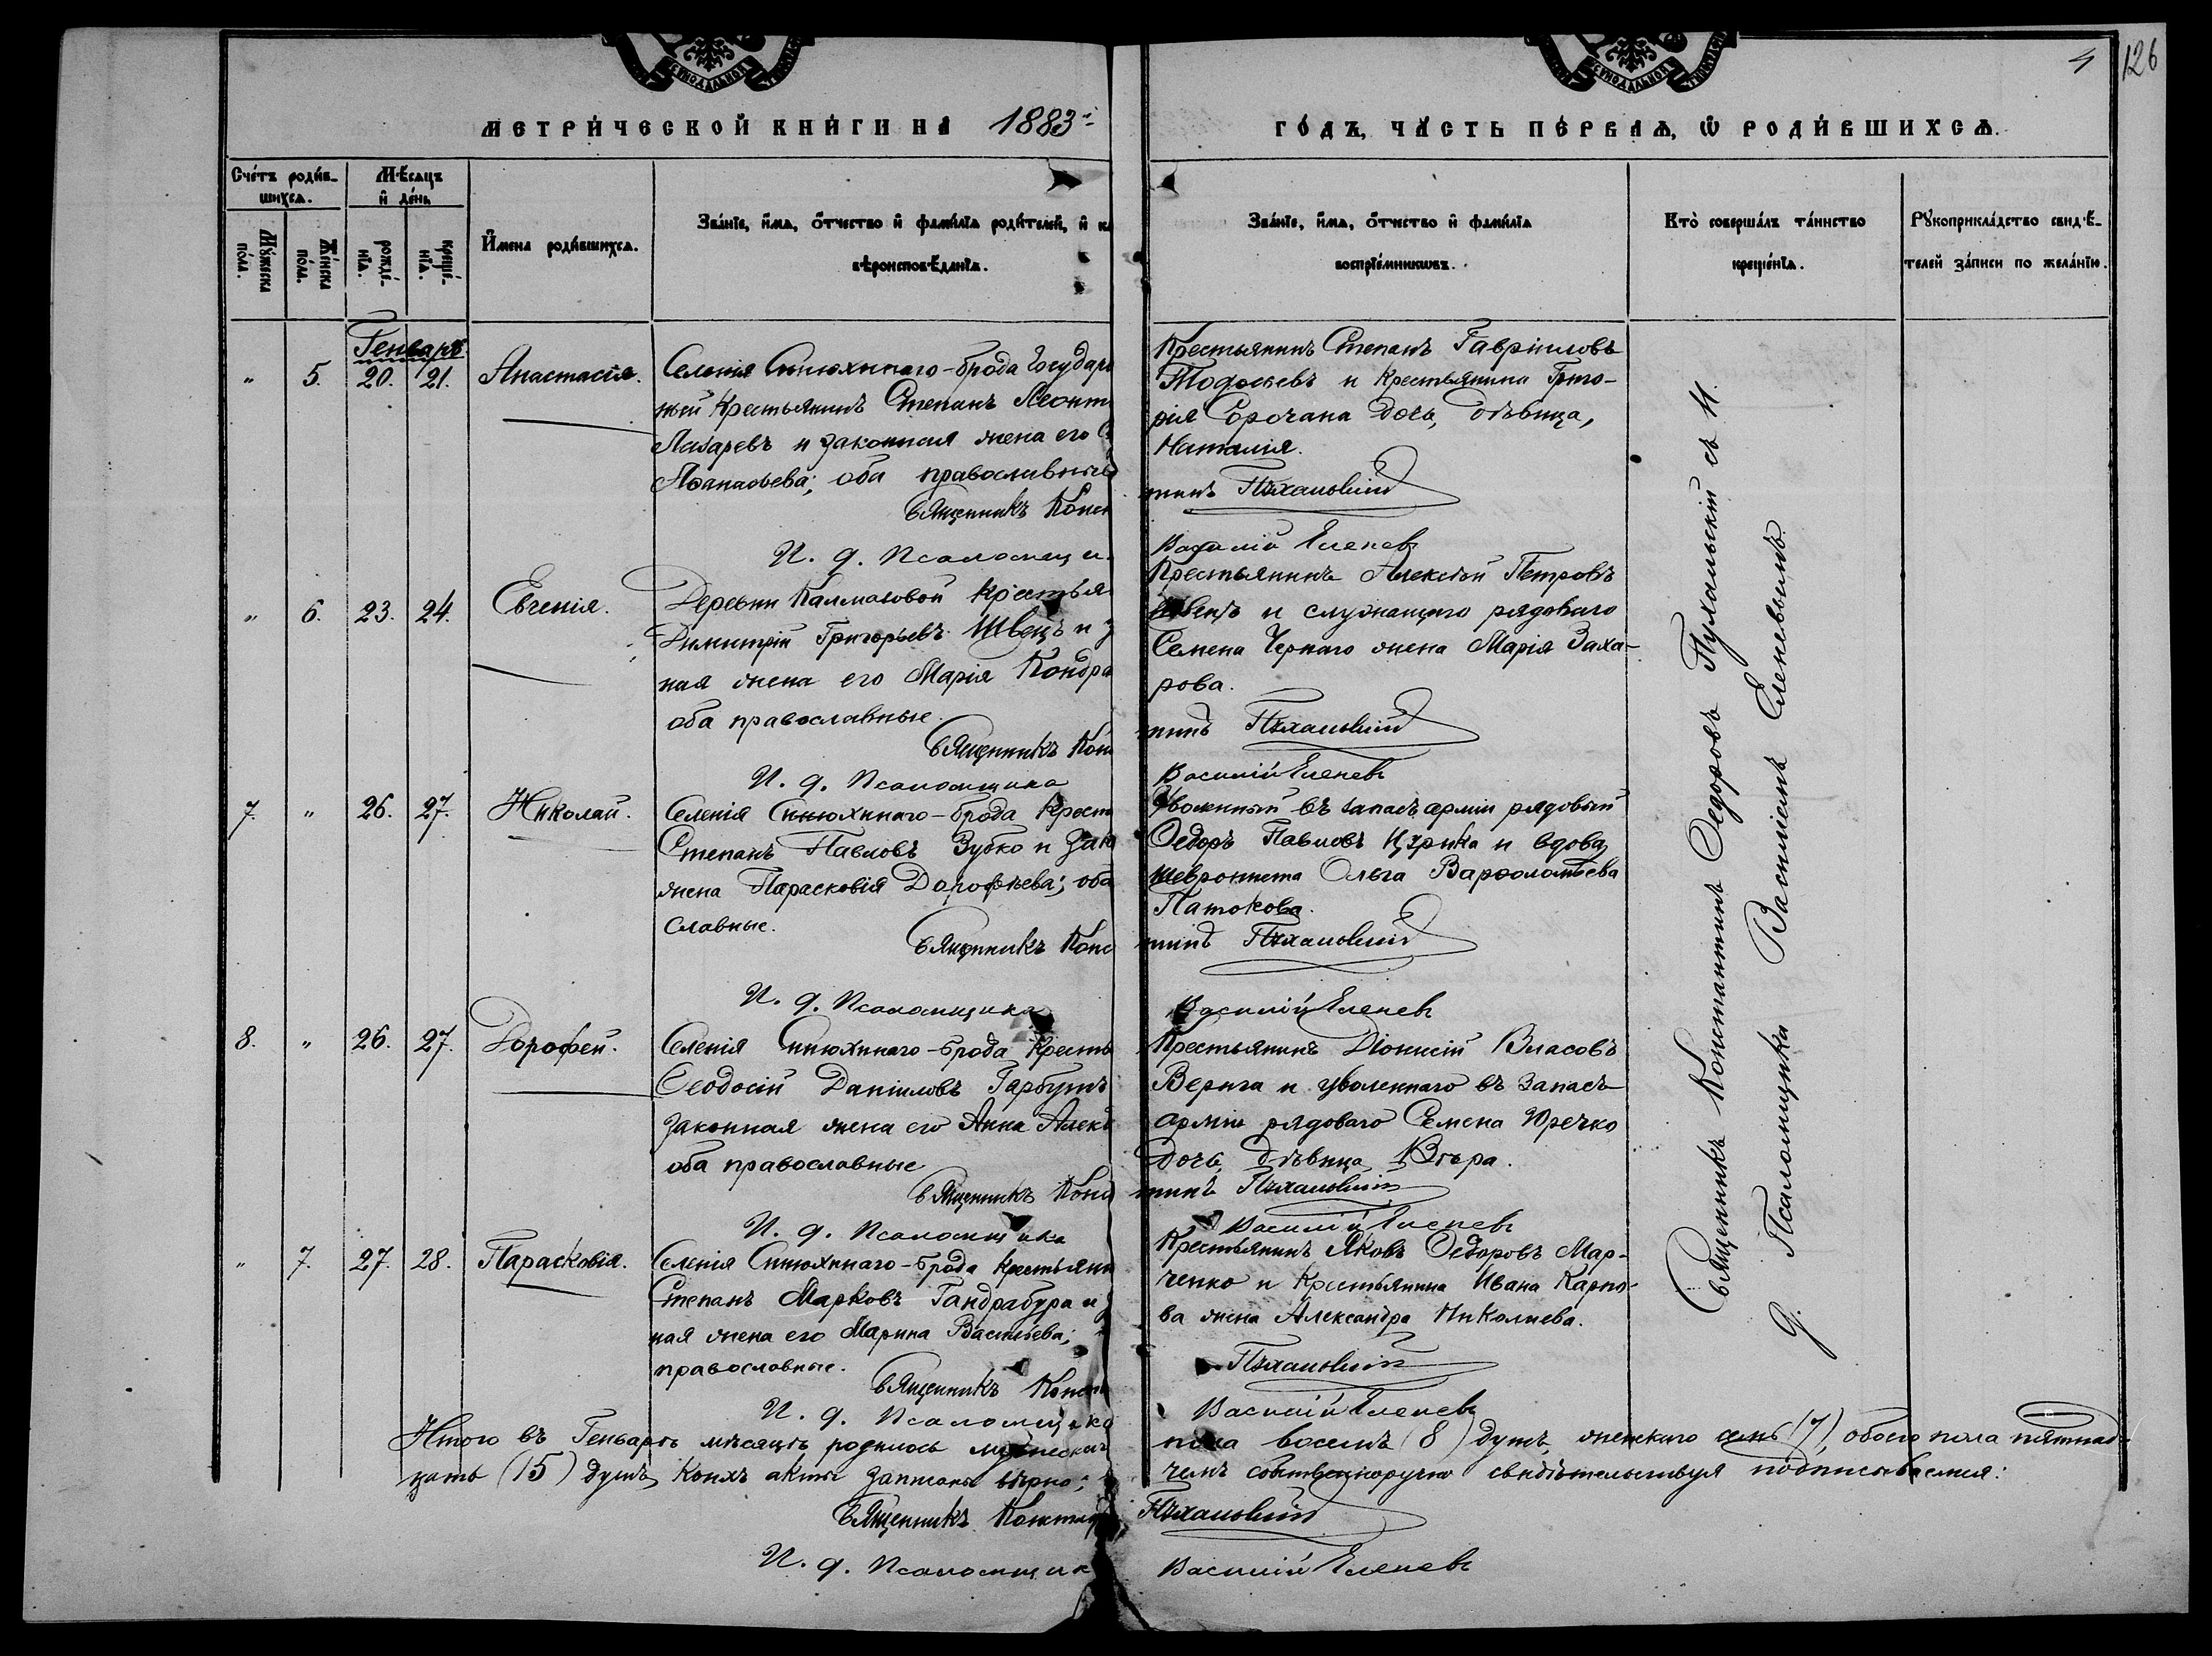 4 126
МЕТРИ́ЧЕСКОЙ КНИ́ГИ НА 1883-й
ГО́ДЪ, ЧА́СТЬ ПЕ́РВАѦ, Ѡ҆ РОДИ́ВШИХСѦ.
Сче́тъ роди́в-
шихсѧ.
Му́жеска по́ла.
Же́нска по́ла.
Мѣ́сѧцъ
и҆ де́нь
рожде́-нїѧ.
креще́-нїѧ.
И҆мена роди́вшихсѧ.
Зва́нїе, и҆́мѧ, ѻ҆́тчество и҆ фами́лїѧ роди́телей, и҆ ка
вѣроисповѣ́данїѧ.
Зва́нїе, и҆́мѧ, ѻ҆́тчество и҆ фами́лїѧ
воспрїе́мниковъ.
Кто̀ соверша́лъ та́инство
креще́нїѧ.
Рꙋкоприкла́дство свидѣ́-
телей за́писи по жела́нїю.
Генварь
" 5. 20. 21. Анастасія.
Селенія Синюхинаго-брода Государ
ный Крестьянинъ Степанъ Леонт
Лазаревъ и законная жена его
Аѳанасьева; оба православные
Священникъ Конс
И. д. Псаломщи
Крестьянинъ Степанъ Гавріиловъ
и Крестьянина Григо-
рія Сорочана дочь, дѣвица,
Наталія.
тинъ Пухальскій
Василій Еленевъ
" 6. 23. 24. Евгенія.
Деревни Калмазовой крестья
Димитрій Григорьевъ Швецъ и з
ная жена его Марія Кондра
оба православные.
Священникъ Кон
И. д. Псаломщика
Крестьянинъ Алексѣй Петровъ
Швецъ и служащаго рядоваго
Семена Чернаго жена Марія Заха-
рова.
тинъ Пухальскій
Василій Еленевъ
7. " 26. 27. Николай.
Селенія Синюхинаго-брода Крест
Степанъ Павловъ Зубко и Зако
жена Парасковія Дорофѣева; оба
славные.
Священникъ Конс
И. д. Псаломщика
Уволенный въ запасъ арміи рядовый
Ѳедоръ Павловъ Цурика и вдова
шеврониста Ольга Варѳоломѣева
Патокова.
тинъ Пухальскій
Василій Еленевъ
8. " 26. 27. Дорофей.
Селенія Синюхинаго-брода Кресть
Ѳеодосій Даніиловъ Гарбузъ
законная жена его Анна Алек
оба православные
Священникъ Конс
И. д. Псаломщика
Крестьянинъ Діонисій Власовъ
Верига и уволеннаго въ запасъ
арміи рядоваго Семена Юречко
дочь, дѣвица, Вѣра.
тинъ Пухальскій
Василій Еленевъ
" 7. 27. 28. Парасковія.
Селенія Синюхинаго-брода крестьяни
Степанъ Марковъ Гандрабура и з
ная жена его Марина Васильева;
православные.
Священникъ Конст
И. д. Псаломщика
Крестьянинъ Яковъ Ѳедоровъ Мар-
ченко и Крестьянина Ивана Карпо-
ва жена Александра Николаева.
Пухальскій
Василій Еленевъ
Священникъ Константинъ Ѳедоровъ Пухальскій съ И.
д. Псаломщика Василіемъ Еленевымъ.
Итого въ Генварѣ мѣсяцѣ родилось мужескаго пола восемь (8) душъ, женскаго семь (7), обоего пола пятнад-
цать (15) душъ, коихъ акты записаны вѣрно; чемъ собственноручно свидѣтельствуя подписываемся:
Священникъ Констан Пухальскій
И. д. Псаломщик Василій Еленевъ